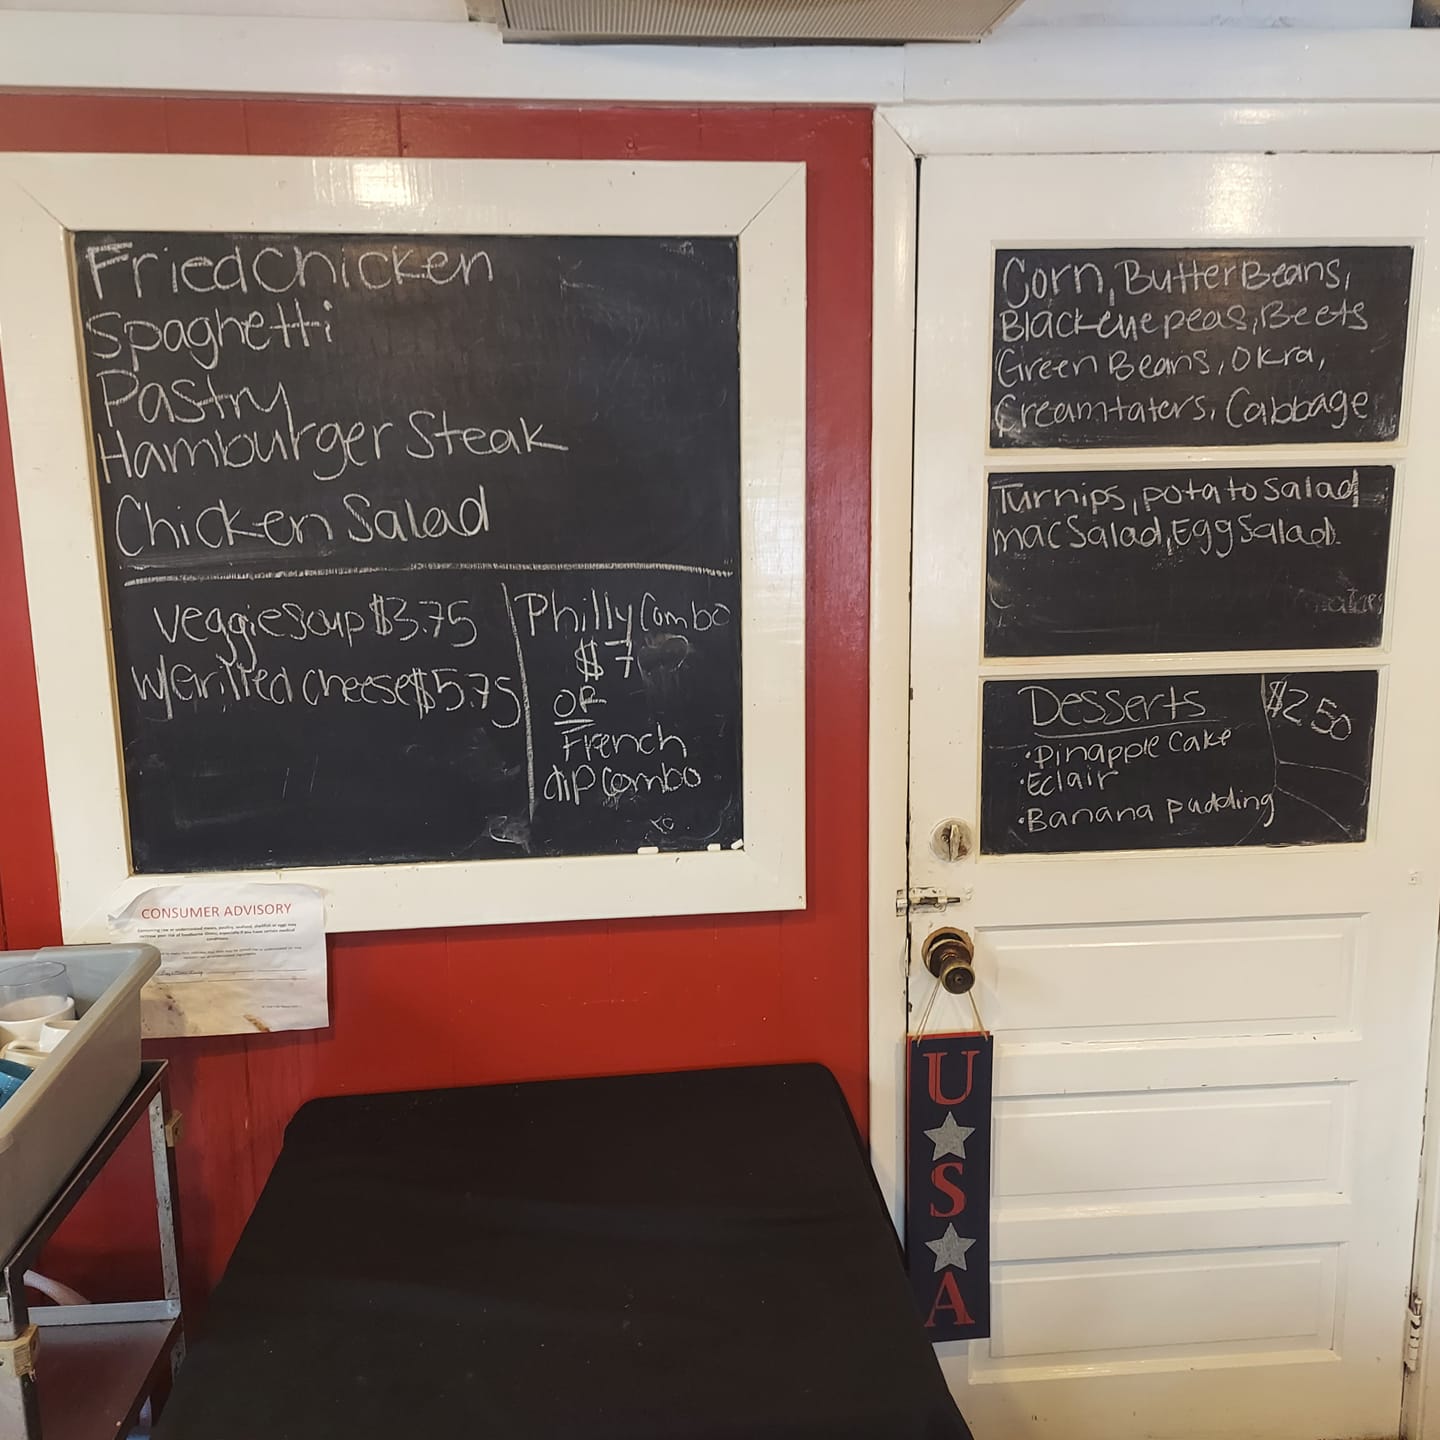 Fried Chicken
Spaghetti
Pastry
Hamburger Steak
Chicken Salad
Veggie Soup $3.75
W/Grilled Cheese $5.75
Philly Combo
$7
OR
French
dip Combo
CONSUMER ADVISORY
Corn, Butter Beans,
Blackeye peas, Beets
Green Beans, Okra,
Creamtaters, Cabbage
Turnips, potato Salad
mac Salad, Egg Salad.
Desserts $2.50
•Pinapple Cake
•Eclair
•Banana pudding
U
S
A